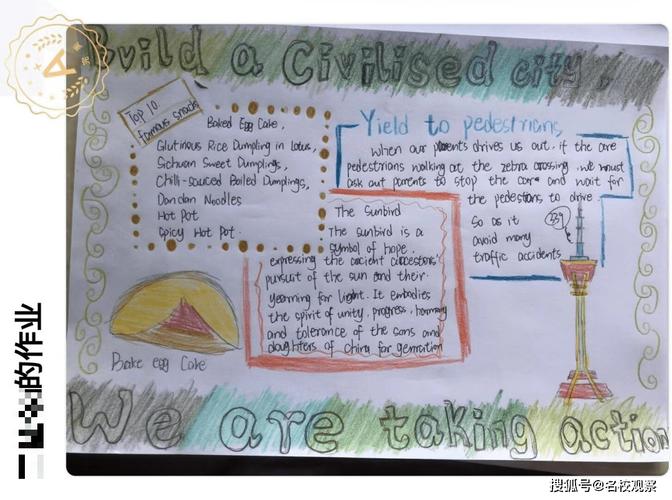 Build a Civilised city,
Top 10
famous snacks
Baked Egg Cake,
Glutinous Rice Dumpling in Lotus,
Sichuan Sweet Dumplings,
Chilli-sauced Boiled Dumplings,
Dandan Noodles
Hot Pot
Spicy Hot Pot.
Yield to pedestrians,
When our parents drives us out, if the are
pedestrians walking at the zebra crossing, we must
ask out parents to stop the car and wait for
the pedestians, to drive.
So as it
avoid many
traffic accidents
339
The Sunbird
The sunbird is a
symbol of hope,
expressing the ancient ancestors'
pursuit of the sun and their
yearning for light. It embodies
the spirit of unity, progress, harmony
and tolerance of the sons and
daughters of China for genration
Bake egg Cake
We are taking action
的作业
搜狐号@名校观察